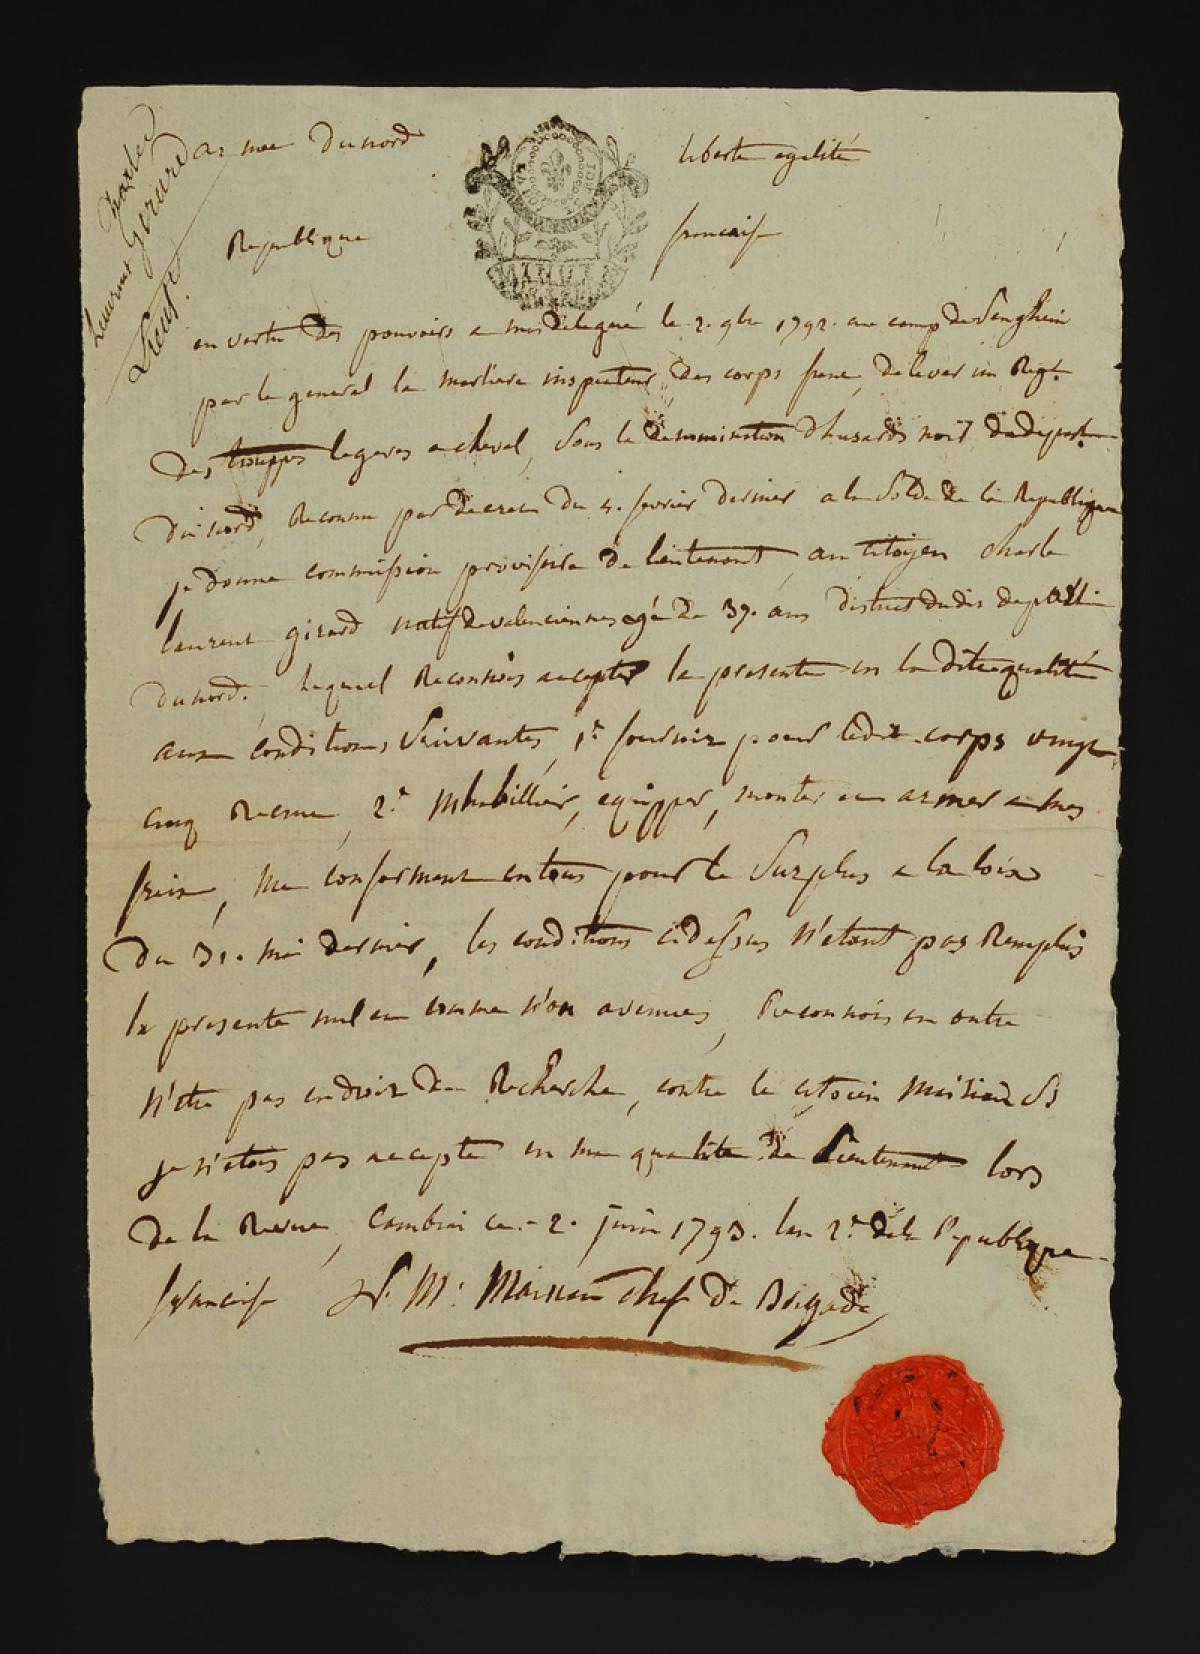 Charles
Laurent Girard
Lieut.
armee Du nord
liberte egalité
Republique
francaise
en vertu Des pouvoirs a moi delegué le 2. 9bre 1792. au camp de Senghein
par le general la marliere inspecteur des corps franc, de lever un Regt.
Des trouppes legeres a cheval, sous la denomination d'husards noirs du depart.
Du nord, Reconnu par decret du 4. fevrier dernier a la solde de la Republique
je donne commission provisoire de lieutenant, au citoyen charle
laurent girard natif de valenciennes agé de 37. ans district dudit departi
du nord. lequel Reconnois accepter la presente en la ditte qualité
aux conditions suivantes, 1° fournir pour ledit corps vingt
cinq Recrue, 2° M'habillier, equipper, monter et armer a mes
frais, me conforment en tous pour le surplus a la loix
du 31. mai dernier, les conditions cidessus n'etant pas Remplis
la presente nul et comme n'on avenues, Reconnois en outre
n'etre pas endroit de Recherche, contre le citoien si
je n'etois pas accepté en ma qualité de Lieutenant lors
de la Revue, Cambrai ce 2. juin 1793. lan 2.e de la Republique
francaise chef de Brigade